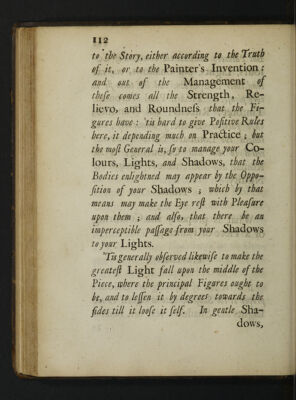 112
to the Story, either according to the Truth
of it, or to the Painter's Invention:
and out of the Management of
theſe comes all the Strength, Re-
lievo, and Roundneſs that the Fi-
gures have: 'tis hard to give Poſitive Rules
here, it depending much on Practice; but
the moſt General is, ſo to manage your Co-
lours, Lights, and Shadows, that the
Bodies enlightned may appear by the Oppo-
ſition of your Shadows; which by that
means may make the Eye reſt with Pleaſure
upon them; and alſo, that there be an
imperceptible paſſage from your Shadows
to your Lights.
'Tis generally obſerved likewiſe to make the
greateſt Light fall upon the middle of the
Piece, where the principal Figures ought to
be, and to leſſen it by degrees towards the
ſides till it looſe it ſelf. In gentle Sha-
dows,